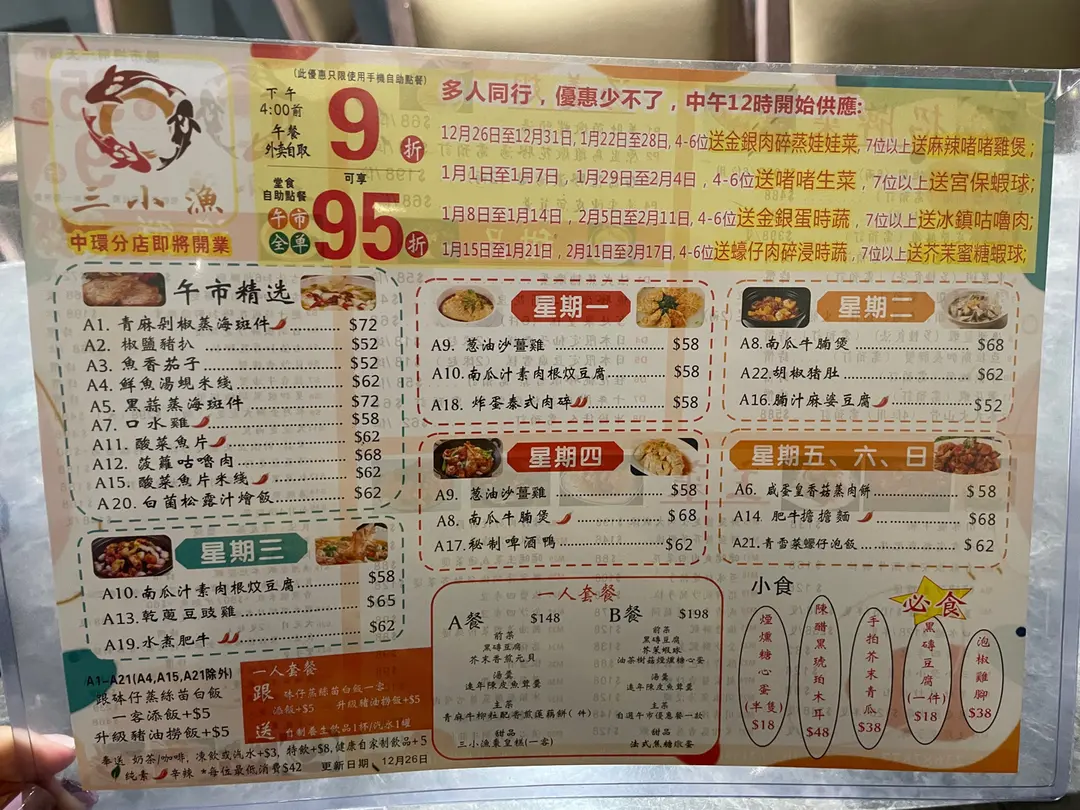 三小漁
中環分店即將開業
(此優惠只限使用手機自助點餐)
下午
4:00前
午餐
外卖自取
9折
堂食
自助點餐
午市
全单
可享
95折
多人同行，優惠少不了，中午12時開始供應:
12月26日至12月31日, 1月22至28日, 4-6位送金銀肉碎蒸娃娃菜, 7位以上送麻辣啫啫雞煲;
1月1日至1月7日, 1月29日至2月4日, 4-6位送啫啫生菜, 7位以上送宮保蝦球;
1月8日至1月14日, 2月05日至2月11日, 4-6位送金銀蛋時蔬, 7位以上送冰鎮咕嚕肉;
1月15日至1月21日, 2月11日至2月17日, 4-6位送蠔仔肉碎浸時蔬, 7位以上送芥茉蜜糖蝦球;
午市精选
A1. 青麻剁椒蒸海斑件 $72
A2. 椒鹽豬扒 $52
A3. 魚香茄子 $52
A4. 鮮魚湯蜆米线 $62
A5. 黑蒜蒸海斑件 $72
A7. 口水雞 $58
A11. 酸菜魚片 $62
A12. 菠蘿咕嚕肉 $68
A15. 酸菜魚片米线 $62
A20. 白菌松露汁燴飯 $62
星期一
A9. 葱油沙薑雞 $58
A10. 南瓜汁素肉根炆豆腐 $58
A18. 炸蛋泰式肉碎 $58
星期二
A8. 南瓜牛腩煲 $68
A22. 胡椒猪肚 $62
A16. 腩汁麻婆豆腐 $52
星期三
A10. 南瓜汁素肉根炆豆腐 $58
A13. 乾蔥豆豉雞 $65
A19. 水煮肥牛 $62
星期四
A9. 葱油沙薑雞 $58
A8. 南瓜牛腩煲 $68
A17. 秘制啤酒鴨 $62
星期五、六、日
A6. 咸蛋皇香菇蒸肉餅 $58
A14. 肥牛擔擔麵 $68
A21. 青雪菜蠔仔泡飯 $62
A1-A21(A4,A15,A21除外)
跟砵仔蒸絲苗白飯
一客添飯+$5
升級豬油撈飯+$5
一人套餐
跟 砵仔蒸絲苗白飯一客
添飯+$5 升級豬油撈飯+$5
送 自制養生飲品1杯/汽水1罐
奉送 奶茶/咖啡, 凍飲或汽水+$3, 特飲+$8, 健康自家制飲品+5
純素 辛辣 *每位最低消費$42 更新日期 12月26日
一人套餐
A餐 $148
前菜
黑磚豆腐
芥末香煎元貝
湯羹
連年陳皮魚茸羹
主菜
青麻牛柳粒配香煎蓮藕餅(件)
甜品
三小漁棗皇糕(一客)
B餐 $198
前菜
黑磚豆腐
芥茉蝦球
油茶樹菇煙燻糖心蛋
湯羹
連年陳皮魚茸羹
主菜
自選午市優惠餐一款
甜品
法式焦糖燉蛋
小食
必食
煙燻糖心蛋(半隻) $18
陳醋黑琥珀木耳 $48
手拍芥末青瓜 $38
黑磚豆腐(一件) $18
泡椒雞腳 $38